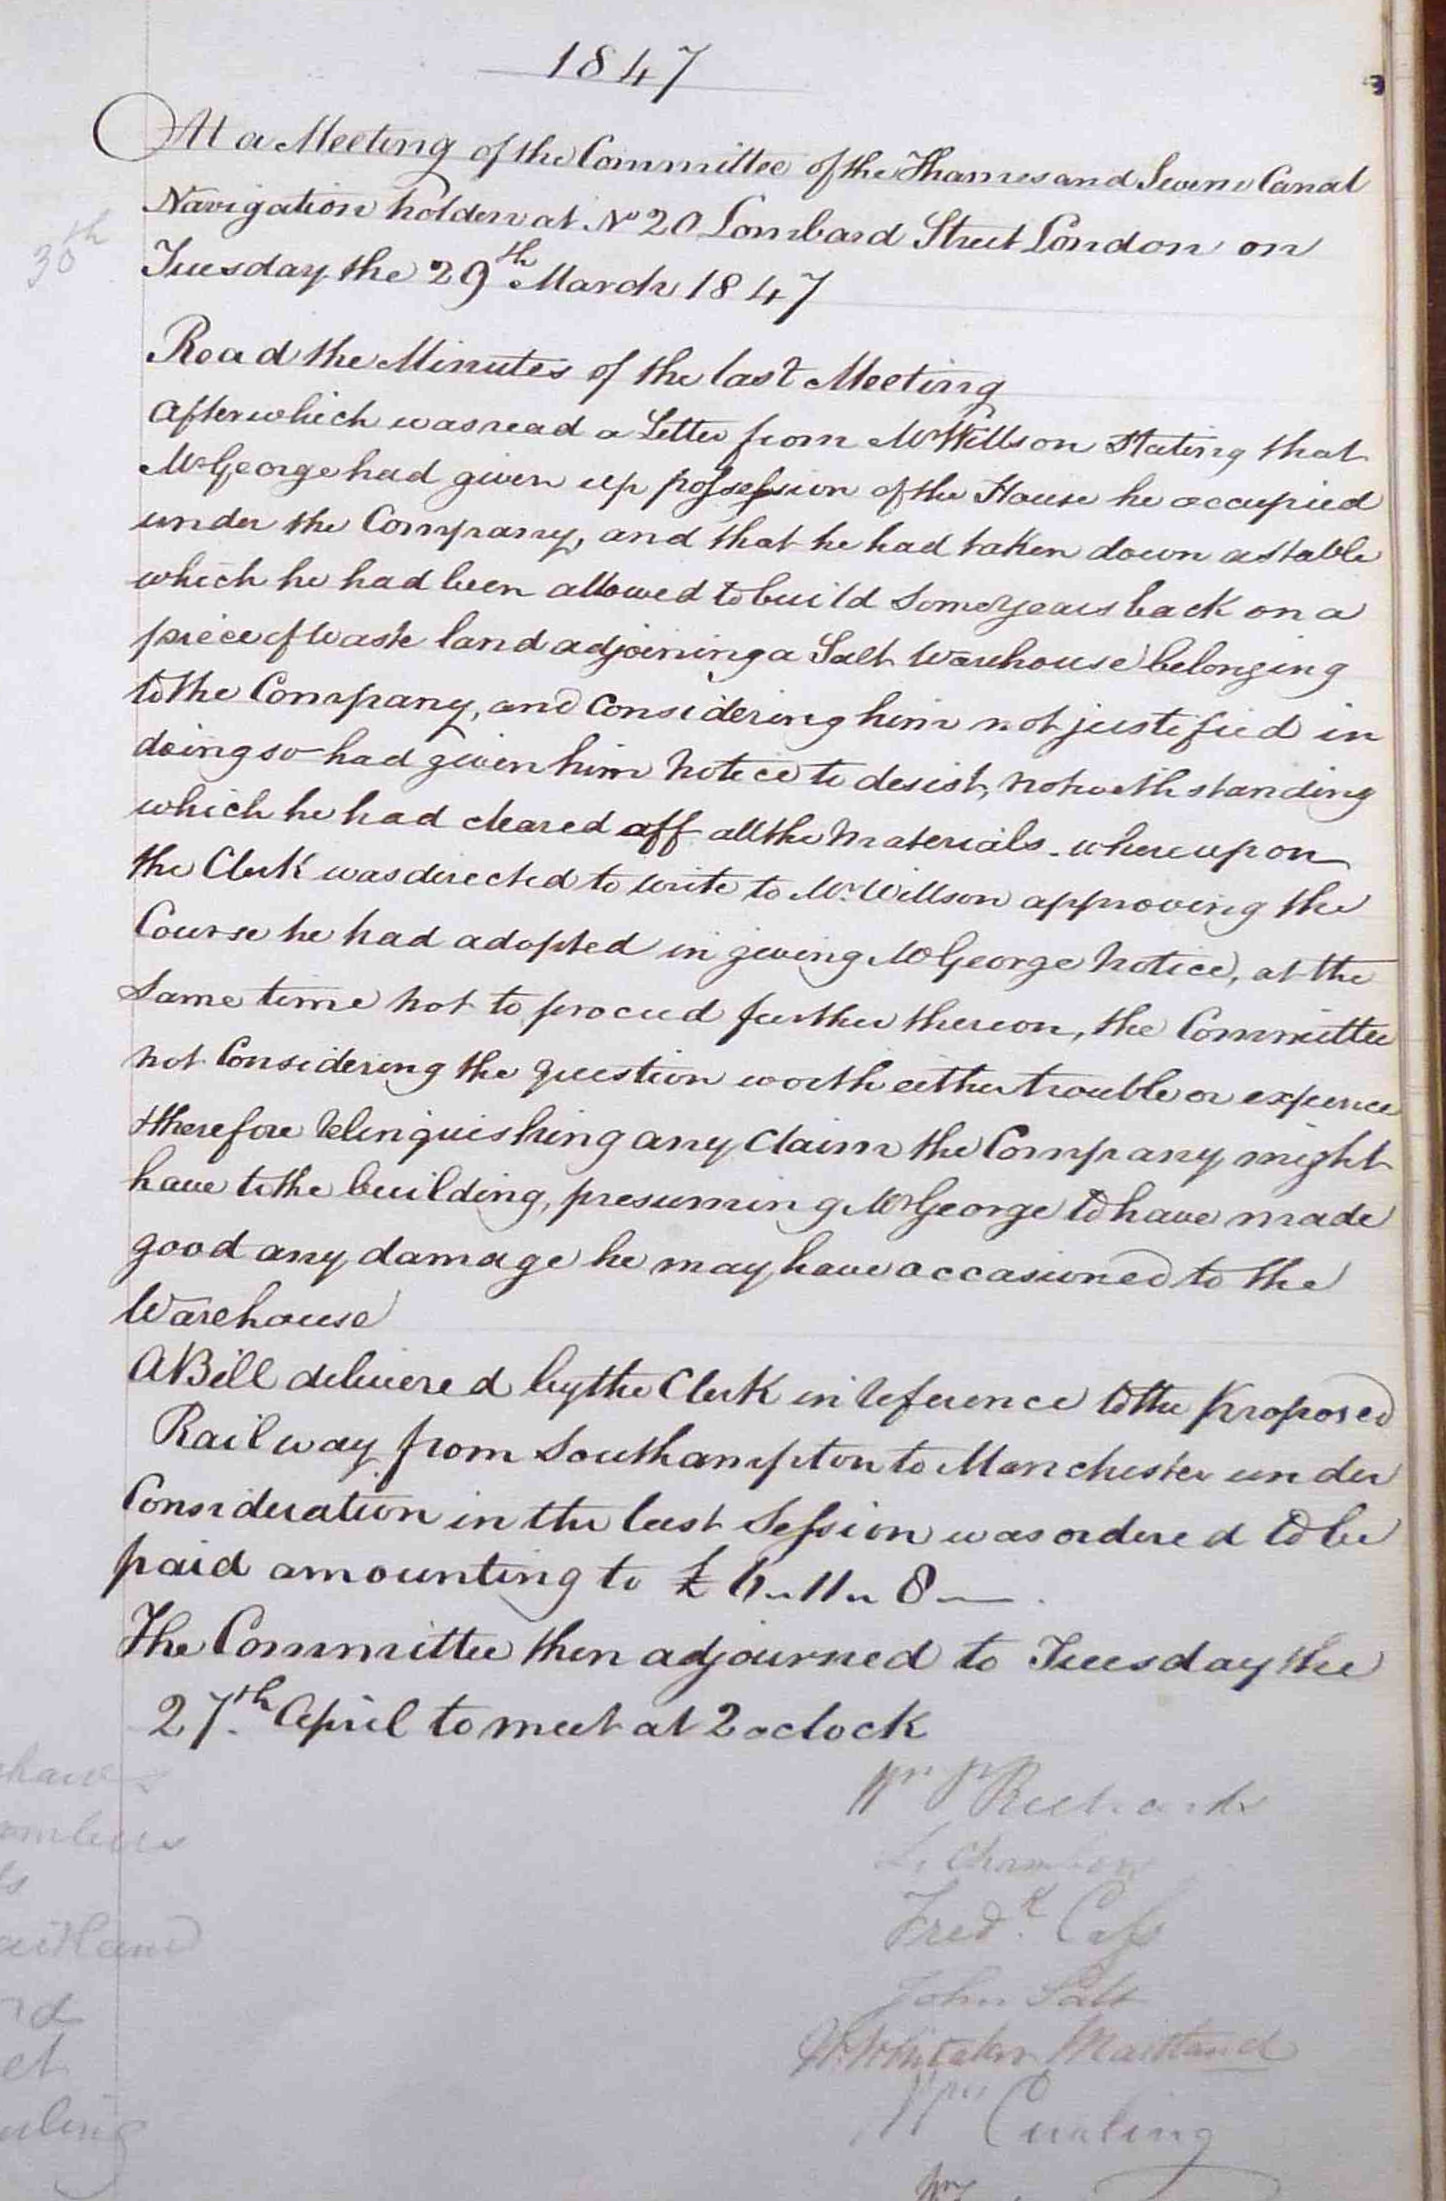 1847
At a Meeting of the Committee of the Thames and Severn Canal
Navigation holden at No 20 Lombard Street London on
30th
Tuesday the 29th March 1847
Read the Minutes of the last Meeting
After which was read a Letter from Mr Willson Stating that
Mr George had given up possession of the House he occupied
under the Company, and that he had taken down a stable
which he had been allowed to build some years back on a
piece of Waste land adjoining a Salt Warehouse belonging
to the Company, and Considering him not justified in
doing so had given him Notice to desist, notwithstanding
which he had cleared off all the Materials. whereupon
the Clerk was directed to write to Mr. Willson approving the
Course he had adopted in giving Mr George Notice, at the
same time not to proceed further thereon, the Committee
not Considering the question worth either trouble or expence
therefore relinquishing any Claim the Company might
have to the building, presuming Mr George to have made
good any damage he may have occasioned to the
Warehouse
A Bill delivered by the Clerk in reference to the Proposed
Railway from Southampton to Manchester under
Consideration in the last Session was ordered to be
paid amounting to £ 6 11 8 —
The Committee then adjourned to Tuesday the
27th April to meet at 2 oclock
Richards
Chambers
Fredk. Cass
John Salt
W. Whitaker Maitland
Wm Curling